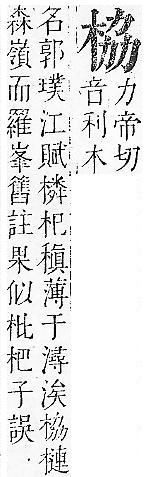 栛
力帝切
音利木
名郭璞江賦橉杞稹薄于潯涘栛槤
森嶺而羅峯舊註果似枇杷子誤．